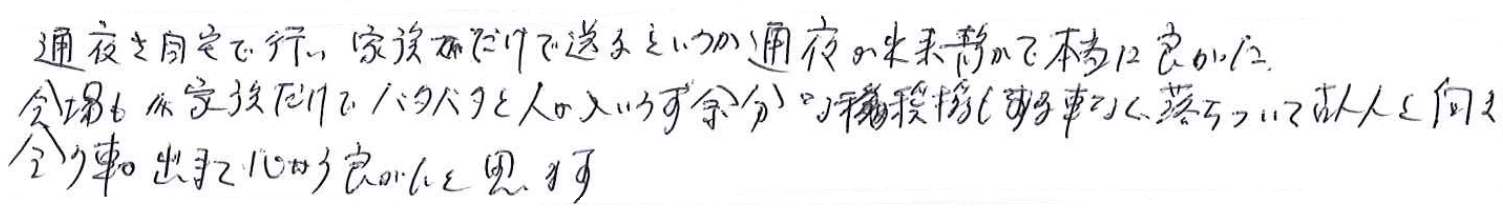 通夜を自宅で行い 家族だけで送るというか通夜が出来静かで本当に良かった。
会場も 家族だけで バタバタと人が入いらず余分な 接待もする事なく、落ちついて故人と向き
合う事が出来て心から良かったと思います